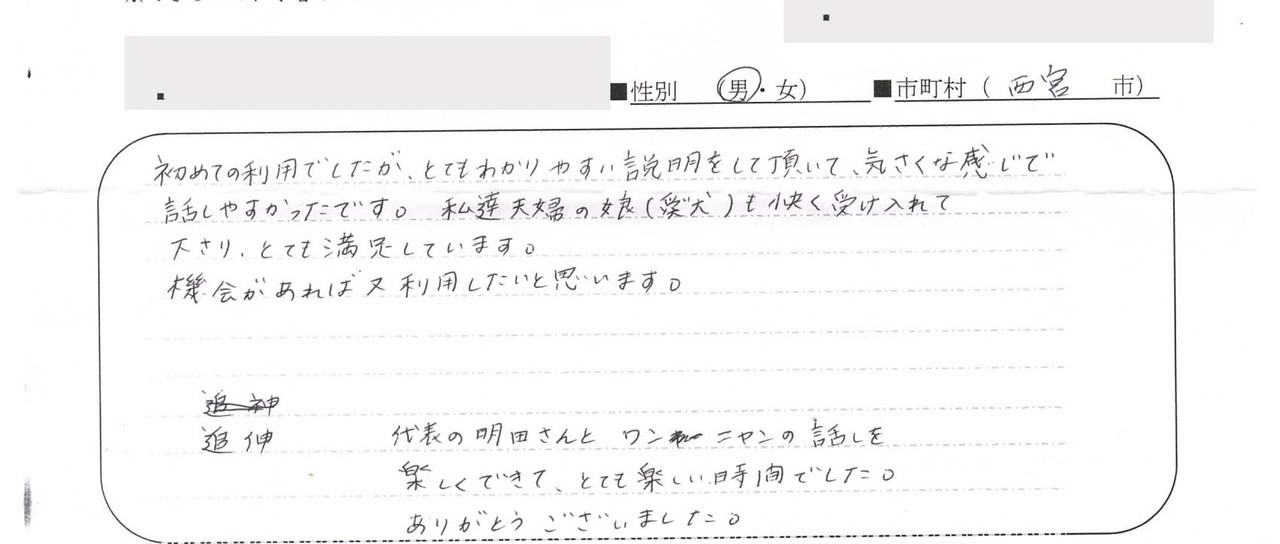 ■性別 (男・女) ■市町村 ( 西宮 市)
初めての利用でしたが、とてもわかりやすい説明をして頂いて、気さくな感じで
話しやすかったです。 私達夫婦の娘(愛犬)も快く受け入れて
下さり、とても満足しています。
機会があれば又利用したいと思います。
追神
追伸 代表の明田さんと ワンニャンの話しを
楽しくできて、とても楽しい時間でした。
ありがとうございました。